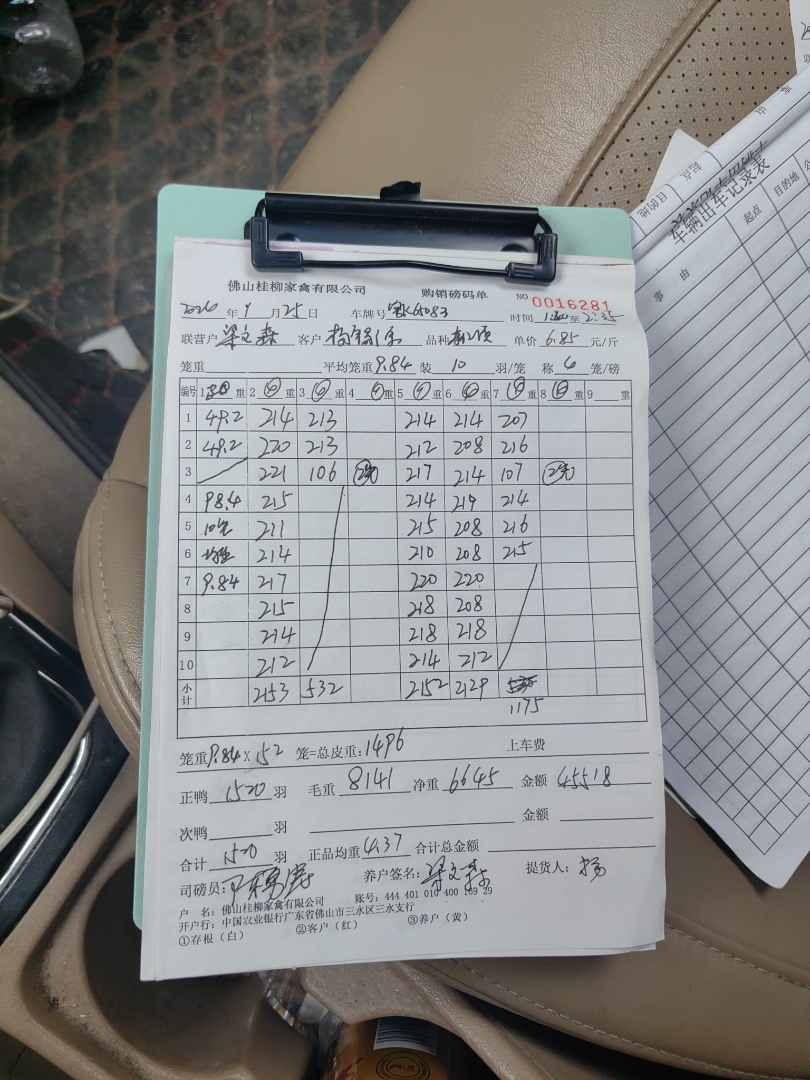 佛山桂柳家禽有限公司 购销磅码单 NO 0016281
2026 年 9 月 25 日 车牌号 时间 至 2:35
联营户 梁文森 客户 杨锦 品种 单价 6.85 元/斤
笼重 平均笼重 9.84 装 10 羽/笼 称 6 笼/磅
编号 1 重 2 ⑥ 重 3 ⑥ 重 4 重 5 重 6 ⑥ 重 7 重 8 重 9 重
1 49.2 214 213 214 214 207
2 49.2 220 213 212 208 216
3 221 106 2笼 217 214 107 2笼
4 98.4 215 214 219 214
5 10笼 211 215 208 216
6 均重 214 210 208 215
7 9.84 217 220 220
8 215 218 208
9 214 218 218
10 212 214 212
小计 2153 532 2152 2129
1175
笼重 9.84 X 152 笼=总皮重: 1496 上车费
正鸭 1520 羽 毛重 8141 净重 6645 金额 45518
次鸭 羽 金额
合计 1520 羽 正品均重 4.37 合计总金额
司磅员: 养户签名: 梁文森 提货人: 杨
户 名: 佛山桂柳家禽有限公司 账号: 444 401 010 400 169 29
开户行: 中国农业银行广东省佛山市三水区三水支行
①存根（白） ②客户（红） ③养户（黄）
车辆出车记录表
起点 目的地